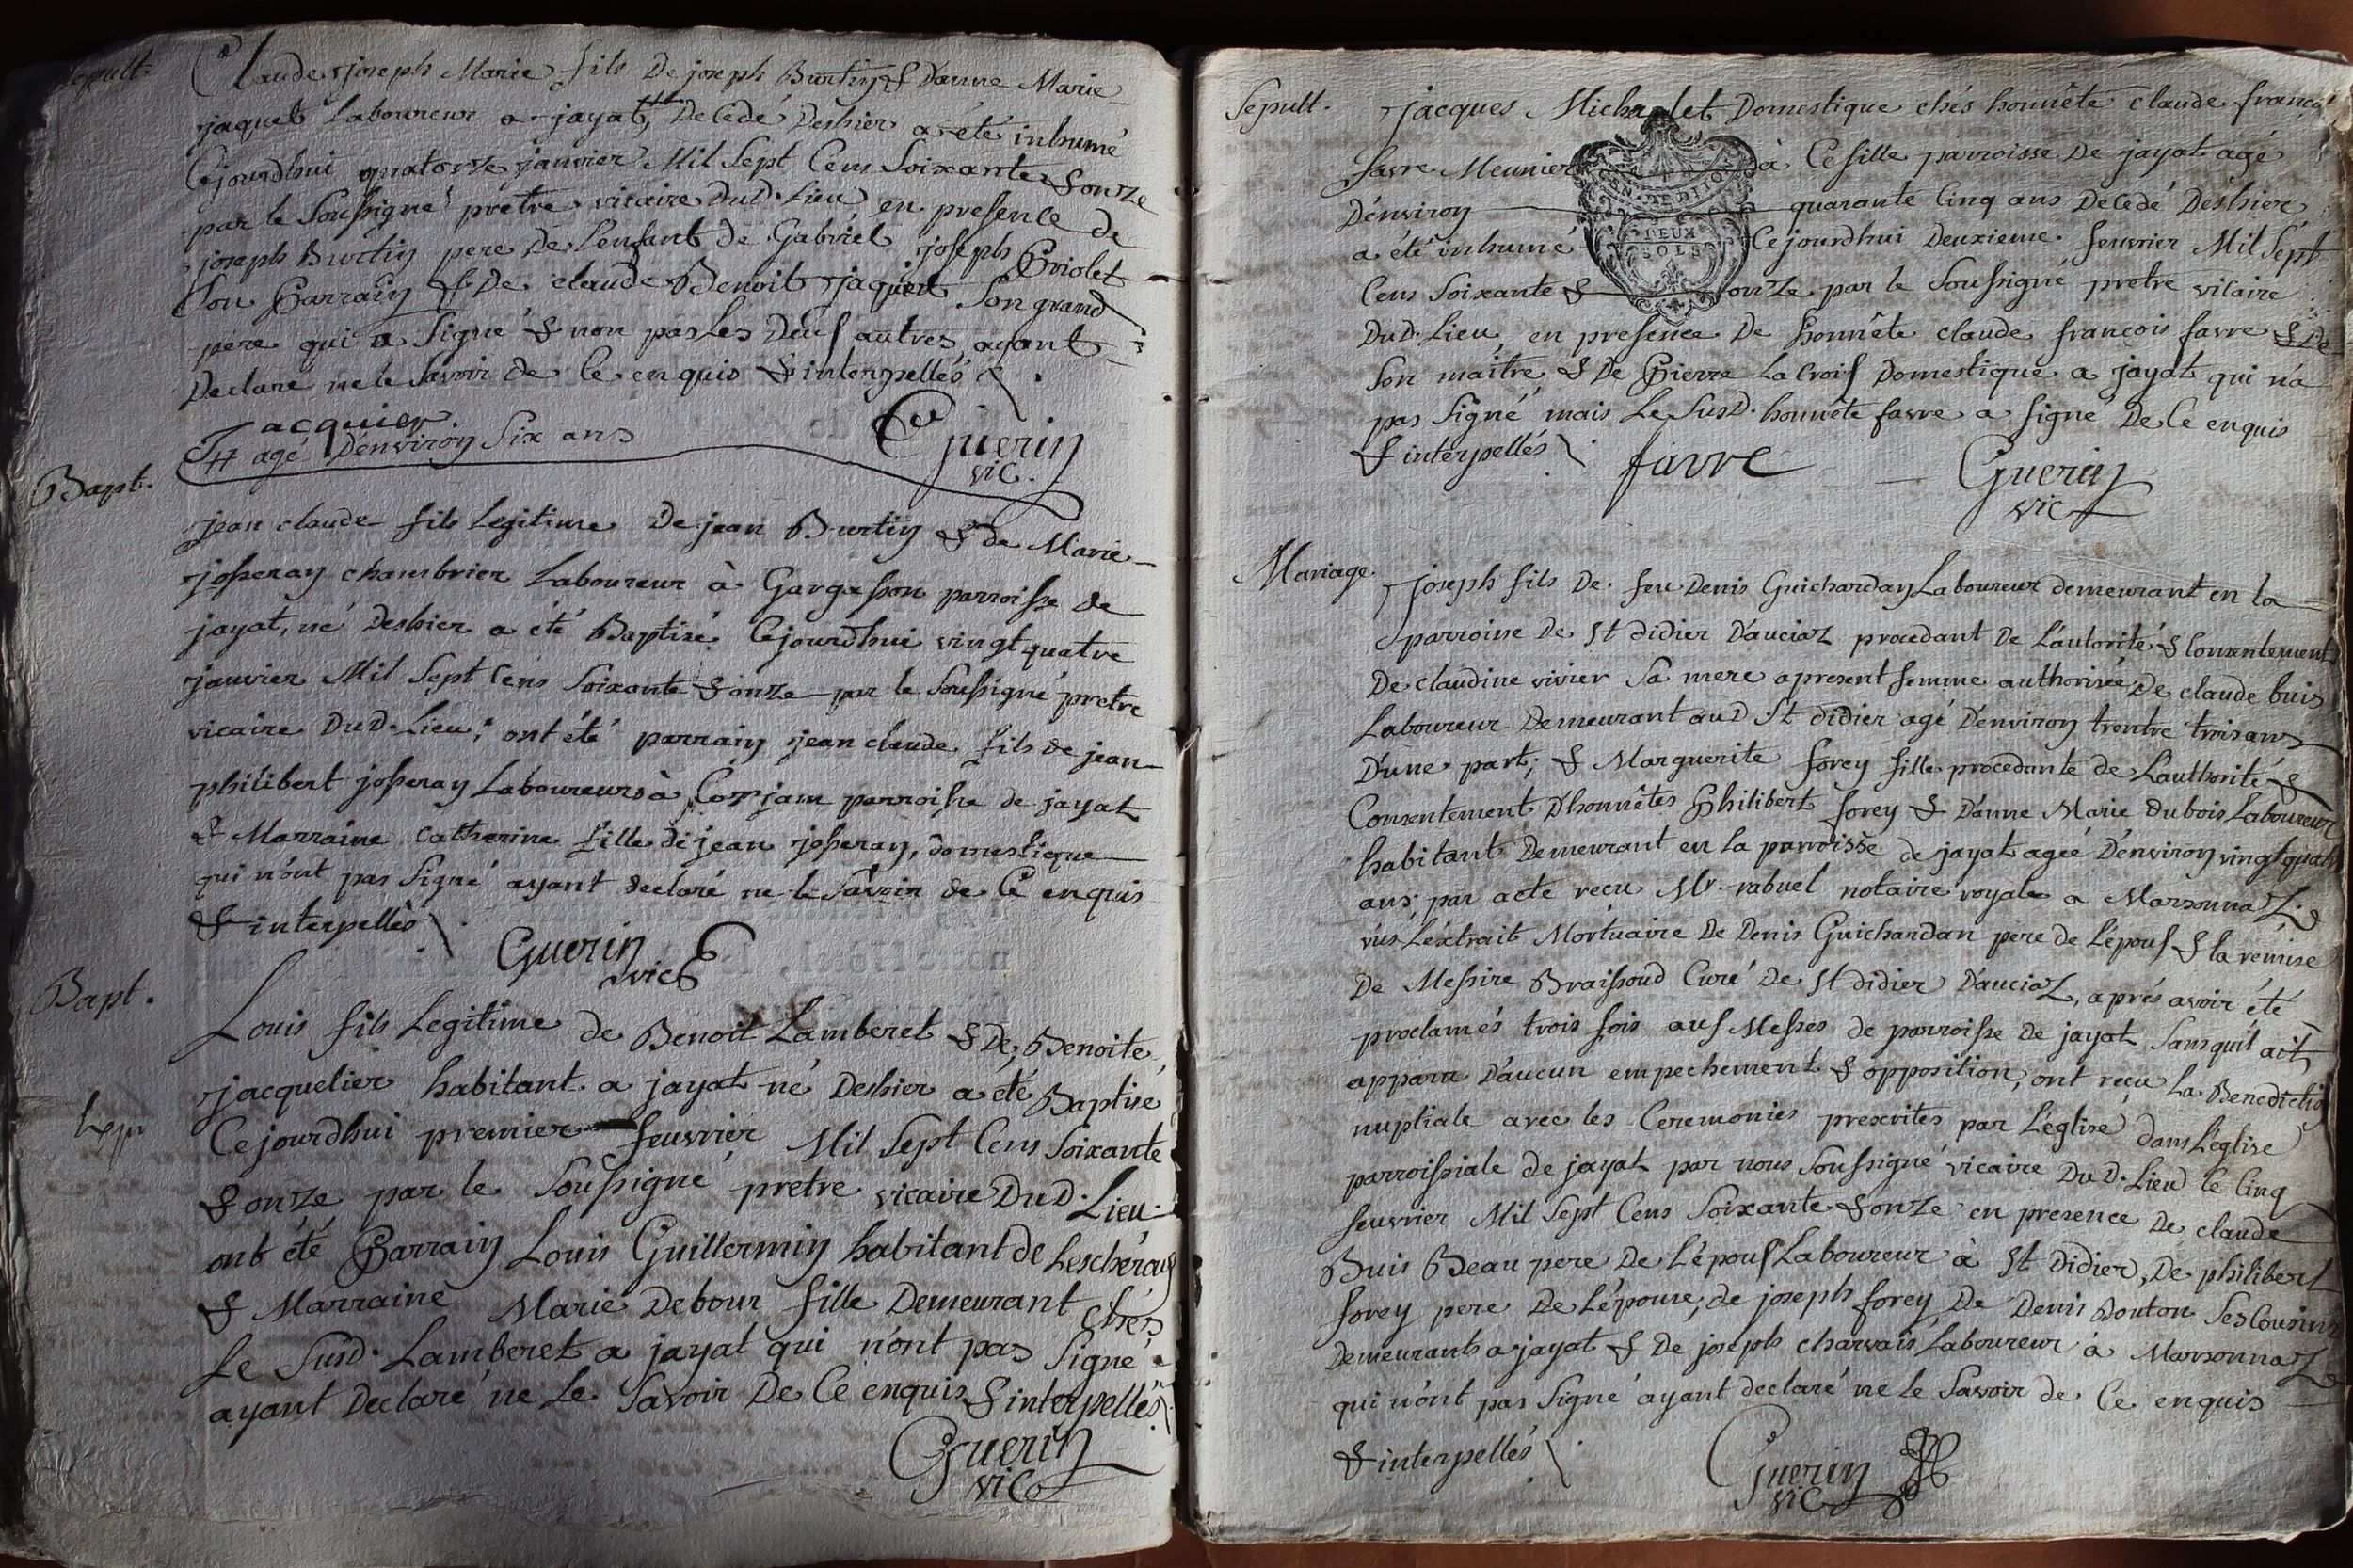 Sepult. Claude joseph Marie fils De joseph Burtin & D'anne Marie
jaquet Laboureur a jayat, # Decedé Deshier a été inhumé
Cejourdhui quatorze janvier Mil Sept Cens Soixante & onze
par le Soussigné prêtre vicaire DuD. Lieu en presence de
joseph Burtin pere De L'enfant de Gabriel joseph Briolet
Son Parrain & De claude Benoit jaquet Son grand
pere qui a Signé & non pas Les Deux autres, ayant
Declaré ne le Savoir de Ce enquis & interpellés
Jacquier
# agé D'environ Six ans
Guerin
vic.
Bapt.
jean claude fils Legitime De jean Burtin & de Marie
josseray chambrier Laboureur à Gargasson parroisse de
jayat, né Deshier a été Baptisé Cejourdhui vingt quatre
janvier Mil Sept Cens Soixante & onze par le Soussigné pretre
vicaire DuD. Lieu; ont été parrain jean claude fils de jean
philibert josseray Laboureurs à Corjam parroisse de jayat
& Marraine Catherine fille de jean josseray, domestique
qui n'ont pas Signé ayant declaré ne le Savoir de Ce enquis
& interpellés
Guerin
vic
Bapt.
Louis fils Legitime de Benoit Lamberet & De Benoite
jacquelier habitant a jayat né Deshier a été Baptisé
Cejourdhui premier feuvrier Mil Sept Cens Soixante
& onze par le Soussigné pretre vicaire DuD. Lieu
ont été Parrain Louis Guillermin habitant de Lescheroux
& Marraine Marie Debour fille Demeurant chés
Le Susd. Lamberet a jayat qui n'ont pas Signé
ayant Declaré ne Le Savoir De Ce enquis & interpellés
Guerin
vic
Sepult. jacques Michalet Domestique chés honnête claude françois
favre Meunier à Cesille parroisse De jayat agé
D'environ quarante Cinq ans Decedé Deshier
a été inhumé Cejourdhui Deuxieme feuvrier Mil Sept
Cens Soixante & onze par le Soussigné pretre vicaire
DuD. Lieu, en presence De honnête claude françois favre
Son maitre & De Pierre La Croix Domestique a jayat qui n'a
pas Signé mais Le SusD. honnête favre a Signé De Ce enquis
& interpellés
favre
Guerin
vic
GEN. DE DIJON
DEUX
SOLS
Mariage. joseph fils De feu Denis Guichardan Laboureur demeurant en la
parroisse De St didier D'auciaz procedant De L'autorité & Consentement
De claudine vivier Sa mere apresent femme authorisée De claude buis
Laboureur Demeurant auD St didier agé D'environ trentre trois ans
D'une part; & Marguerite forey fille procedante de L'authorité &
Consentement D'honnêtes Philibert forey & D'anne Marie Dubois Laboureur
habitant Demeurant en la parroisse de jayat agée D'environ vingt quatre
ans; par acte reçu Mr. rabuel notaire royale a Marsonnaz;
vus L'extrait Mortuaire De Denis Guichardan pere de L'époux & la remise
De Messire Braissoud Curé De St didier D'auciaz, aprés avoir été
proclamés trois fois aux Messes de parroisse De jayat Sans quil ait
apparu D'aucun empechement & opposition, ont reçu La Benediction
nuptiale avec les Ceremonies prescrites par L'église dans L'église
parroissiale de jayat par nous Soussigné vicaire DuD. Lieu le Cinq
feuvrier Mil Sept Cens Soixante & onze en presence De claude
Buis Beau pere De L'époux Laboureur à St Didier, De philibert
forey pere De L'épouse, de joseph forey De Denis Bouton Ses Cousins
Demeurants a jayat & De joseph charvais Laboureur à Marsonnaz
qui n'ont pas Signé ayant declaré ne le Savoir de Ce enquis
& interpellés
Guerin
vic